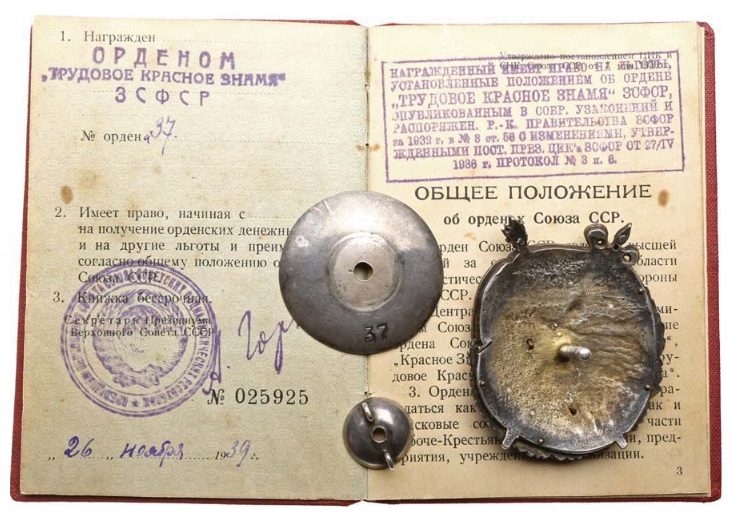 1. Награжден
ОРДЕНОМ
„ТРУДОВОЕ КРАСНОЕ ЗНАМЯ“
ЗСФСР
№ ордена 37
2. Имеет право, начиная с
на получение орденских денежн
и на другие льготы и преим
согласно общему положению о
Союза ССР.
3. Книжка бессрочная.
Секретарь Президиума
Верховного Совета СССР
А. Горк
№ 025925
„26„ ноября 1939 г.
37
Утверждено постановлением ЦИК и
НАГРАЖДЕННЫЙ ИМЕЕТ ПРАВО НА ЛЬГОТЫ,
УСТАНОВЛЕННЫЕ ПОЛОЖЕНИЕМ ОБ ОРДЕНЕ
„ТРУДОВОЕ КРАСНОЕ ЗНАМЯ“ ЗСФСР,
ОПУБЛИКОВАННЫМ В СОБР. УЗАКОНЕНИЙ И
РАСПОРЯЖЕН. Р.-К. ПРАВИТЕЛЬСТВА ЗСФСР
за 1932 г. в № 8 ст. 58 С ИЗМЕНЕНИЯМИ, УТВЕР-
ЖДЕННЫМИ ПОСТ. ПРЕЗ. ЦИК'а ЗСФСР ОТ 27/IV
1936 г. ПРОТОКОЛ № 3 п. 6.
ОБЩЕЕ ПОЛОЖЕНИЕ
об орденах Союза ССР.
орден Союза ССР высшей
й за о области
стическ ороны
ССР.
Центра ми-
м Союз ие
ордена Союза “,
„Красное Зн ру-
довое Крас а“.
3. Орден ра-
даться как ак и
исковые со части
боче-Крестьян и, пред-
риятия, учрежден низации.
3